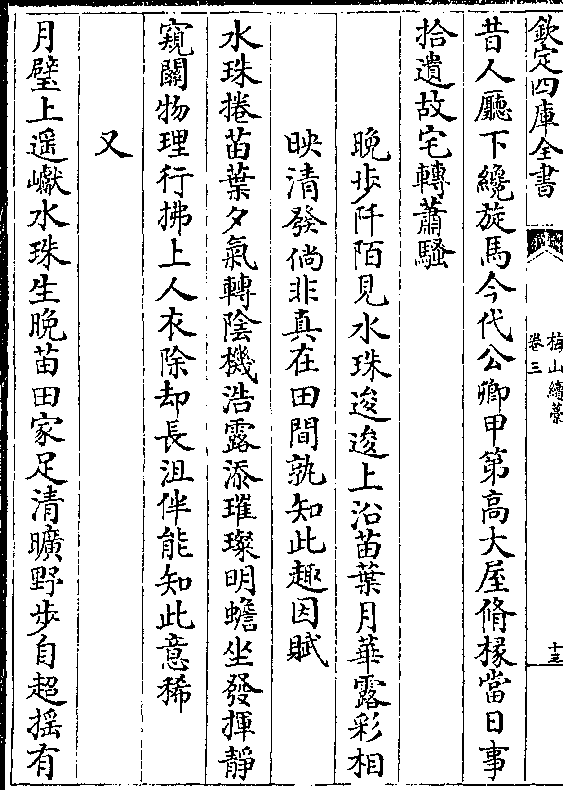 欽定四庫全書
梅山續藁
卷三
十三
昔人廳下纔旋馬今代公卿甲第高大屋脩椽當日事
拾遺故宅轉蕭騷
晚步阡陌見水珠逡逡上沿苗葉月華露彩相
映清發倘非真在田間孰知此趣因賦
水珠捲苗葉夕氣轉陰機浩露添璀璨明蟾坐發揮靜
窺關物理行拂上人衣除却長沮伴能知此意稀
又
月壁上遥巘水珠生晚苗田家足清曠野步自超摇有